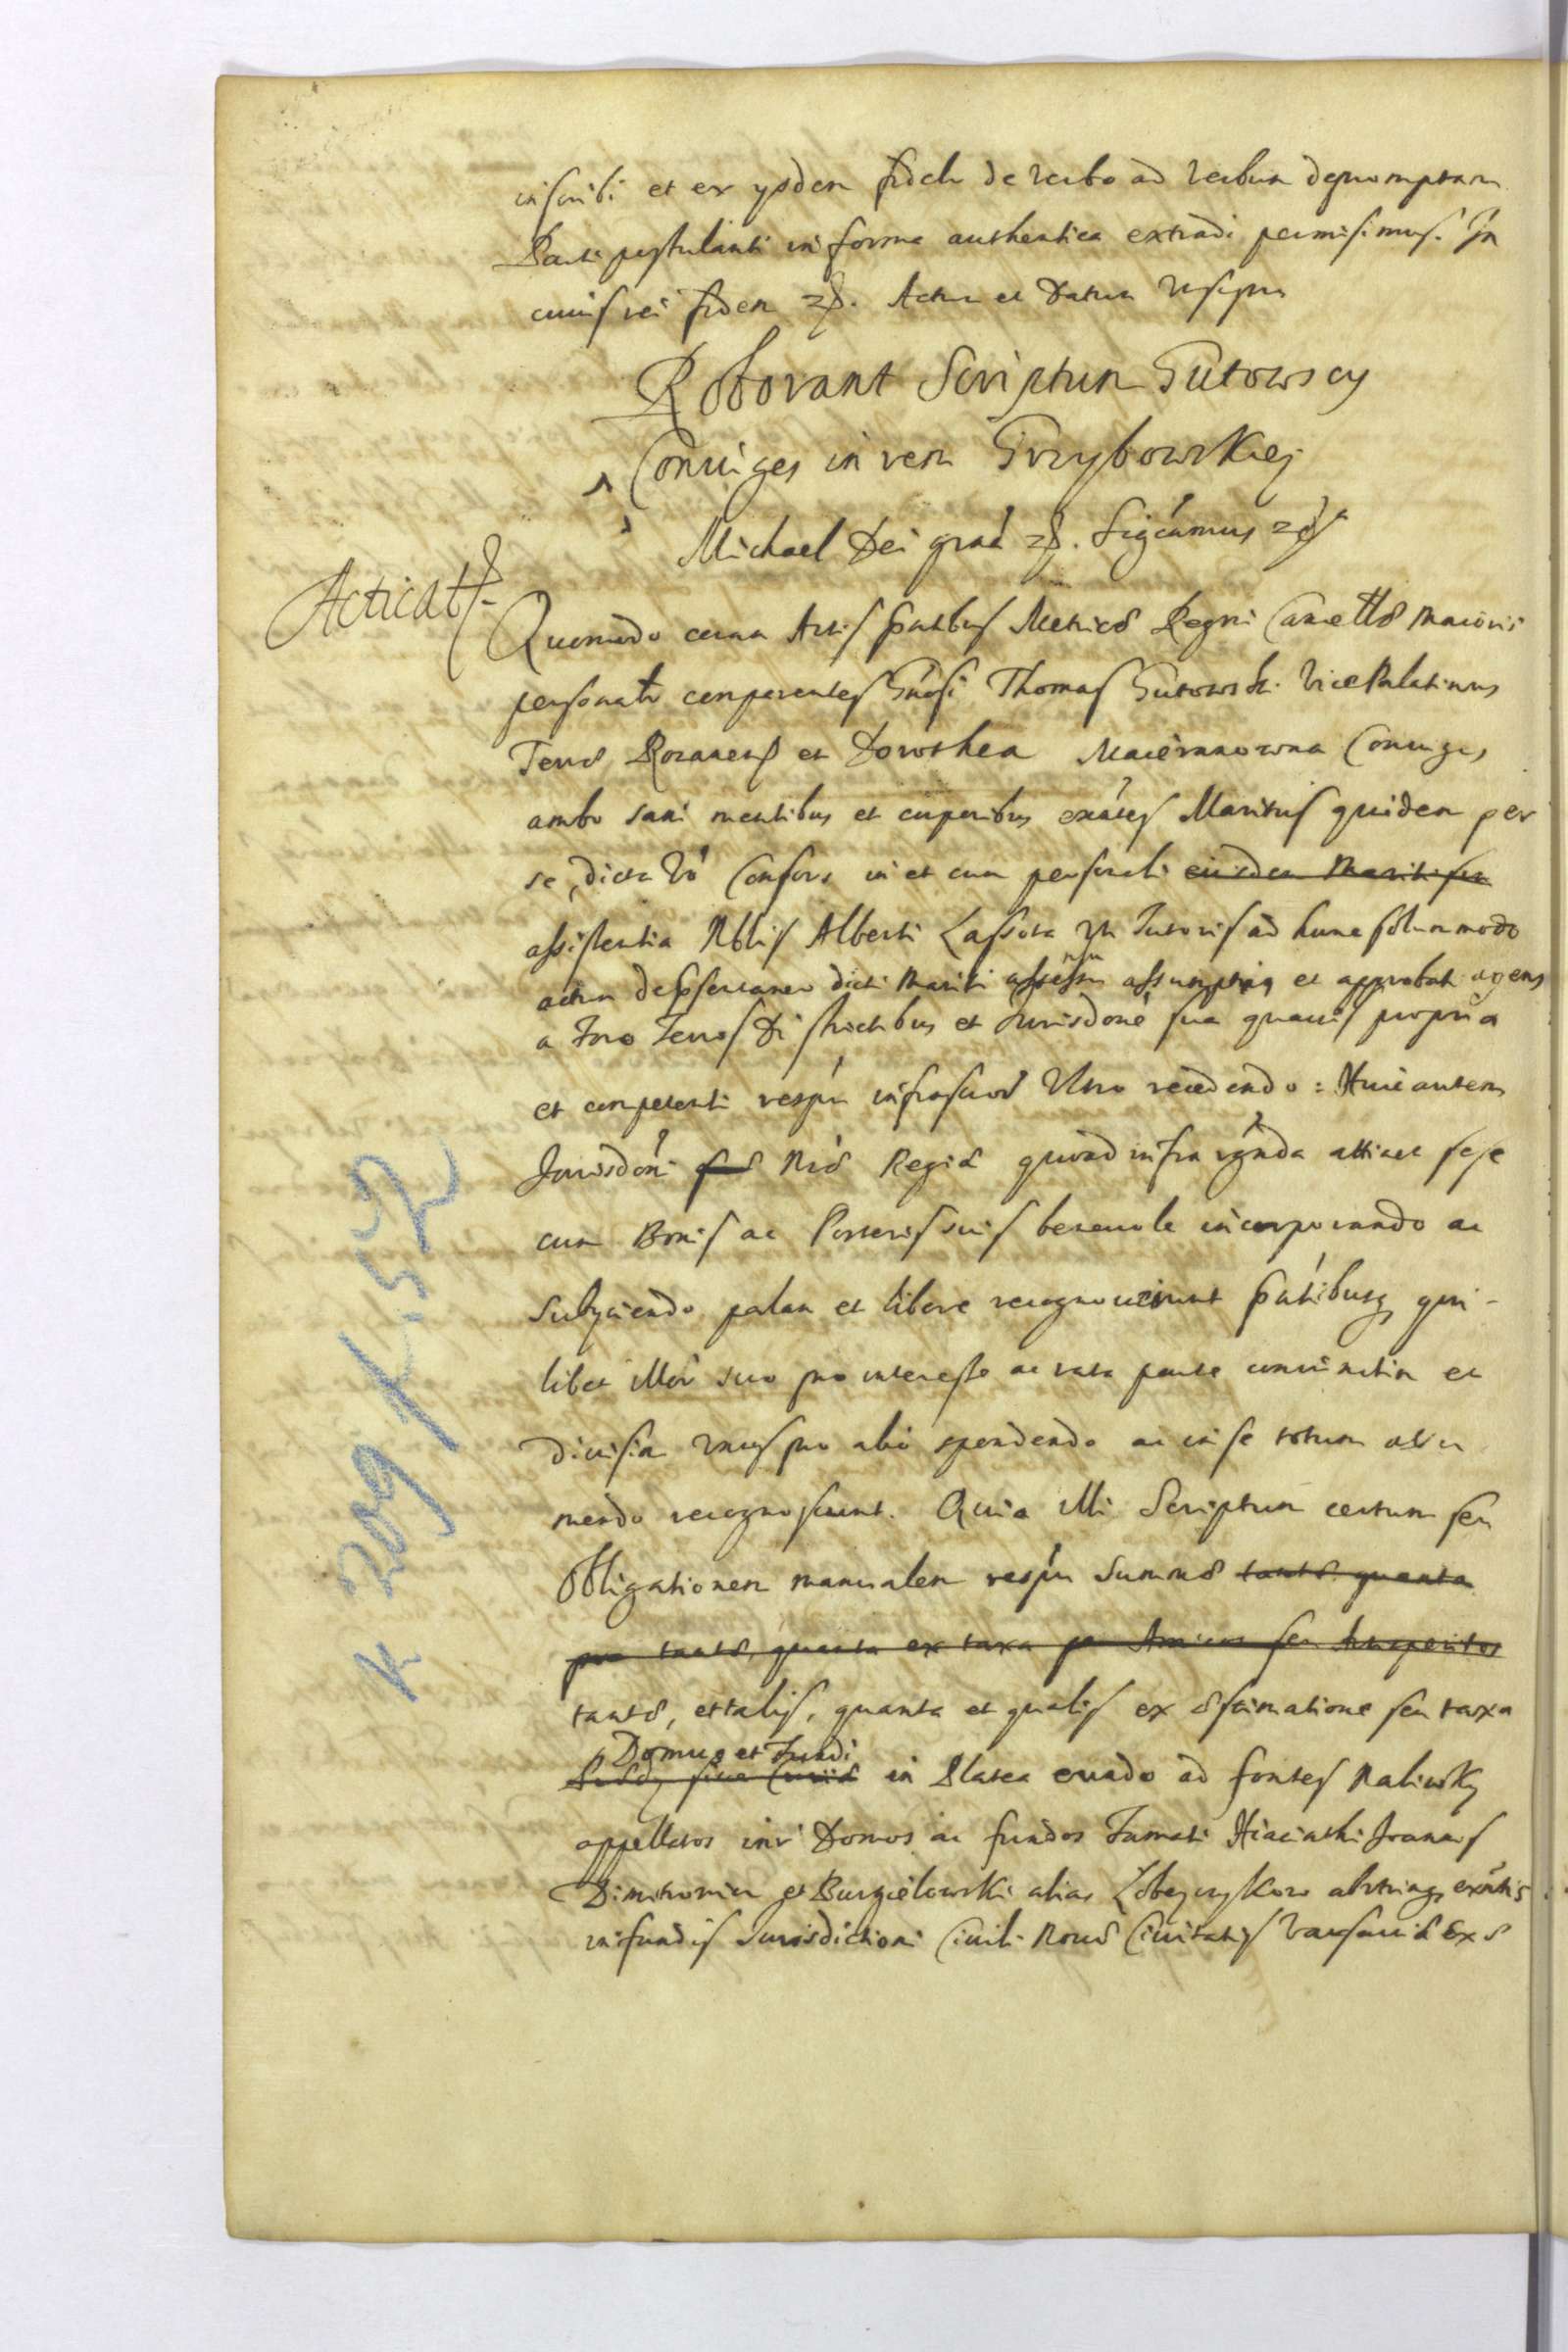 inscribi et ex ijsdem fideli de verbo ad verbum depromptam
Parti postulanti in forma authentica extradi permisimus. In
cuius rei fidem Actum et Datum ut supra
Roborant Scriptum Gutowscy
Coniuges in rem Grzybowskiej
Michael Dei gra Sigcamus
Acticat
Quomodo coram Actis pntibus Metrices Regni Cancellae Maioris
personaliter comparentes Gnosi Thomas Gutowski Vice Palatinus
Terrae Rozanens et Dorothea Maiernaowna Coniuges
ambo sani mentibus et corporibus exntes Maritus quidem per
se, dicta vo Consors in et cum personali eiusdem Mariti sui
assistentia Nblis Alberti Lassota uti Tutoris ad hunc solummodo
actum dicti Mariti assumptiq et approbati agens
a Foro Terris Districtibus et Jurisdone sua quavis propria
et competenti respu infrascrod Ultro recedendo: Huic autem
Jurisdoni Nrae Regiae quoad infra rgnda attinet sese
cum Bonis ac Posteris suis benevole incorporando ac
Subijciendo palam et libere recognoverunt pntibusq qui-
libet illor suo pro interesse ac rata parte coniunctim et
divisim unus pro alio spondendo ac in se totum assu
mendo recognoscunt. Quia illi Scriptum certum seu
Obligationem manualem respu Summae tantae quanta
pro tanta, quanta ex taxa per Amicos seu
tantae, et talis, quanta et qualis ex aestimatione seu taxa
Domus et Fundi
in Platea eundo ad fontes Naliwki
appellatos intr Domos ac fundos Famati Hiacinthi Joannis
Dimitrowicz et Burgielowski alias ab utrinq exntis
in fundis Jurisdictioni Civili Novae Civitatis Varsaviae
K 209 K. 52